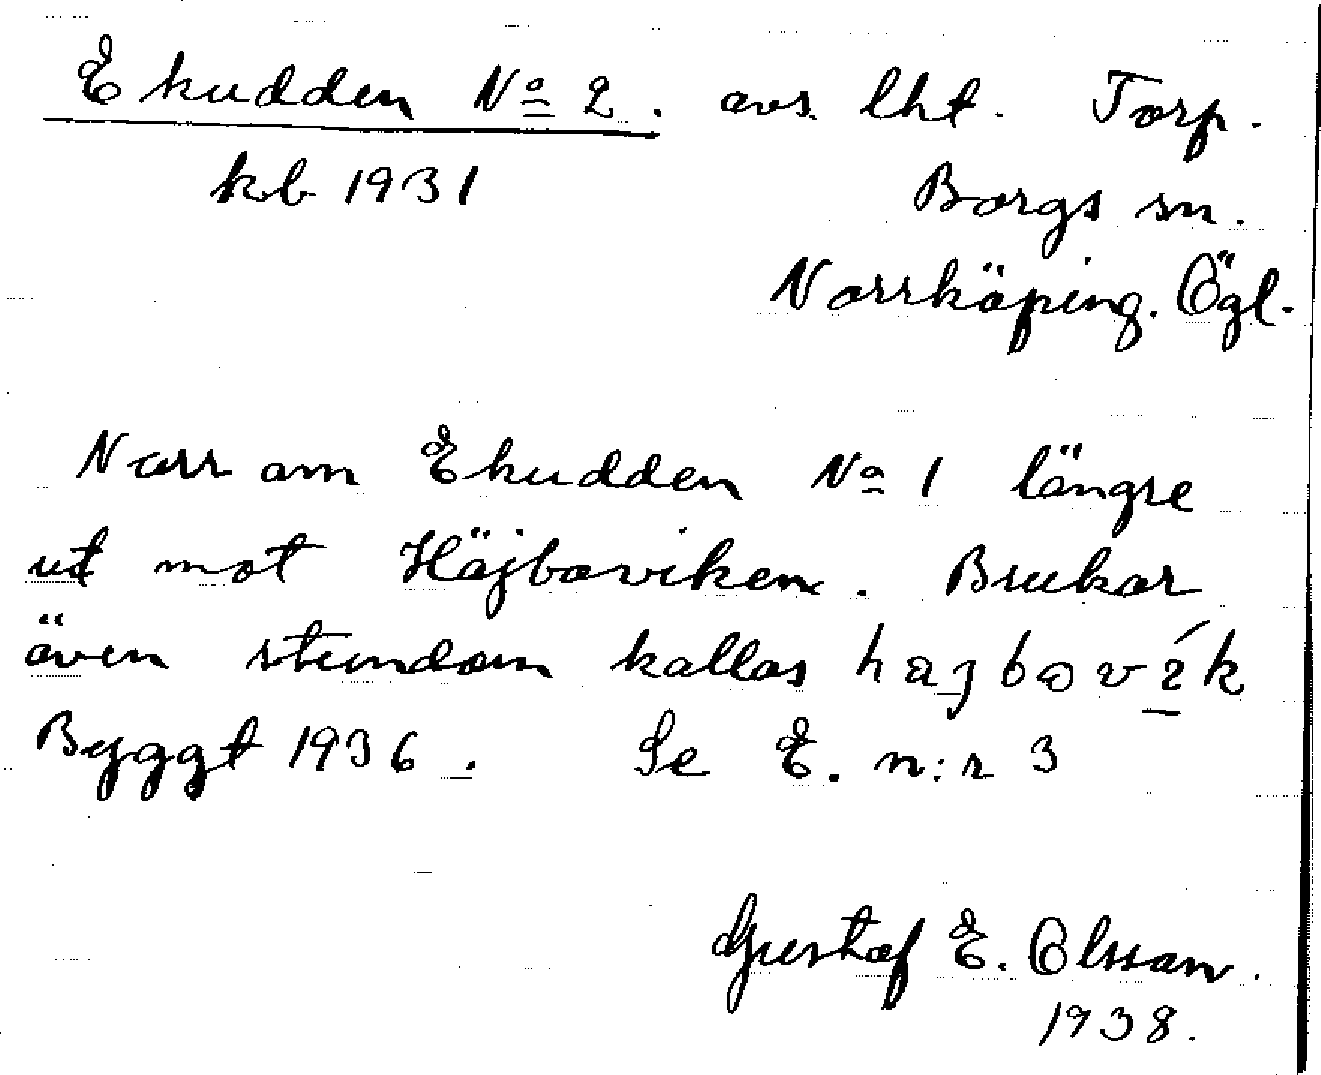 Ekudden No 2. avs. lht. Torp.
kb 1931 Borgs sn.
Norrköping. Ögl.
Norr om Ekudden No 1 längre
ut mot Höjboviken. Brukar
även stundom kallas
Byggt 1936. Se E. n:r 3
Gustaf E. Olsson.
1938.